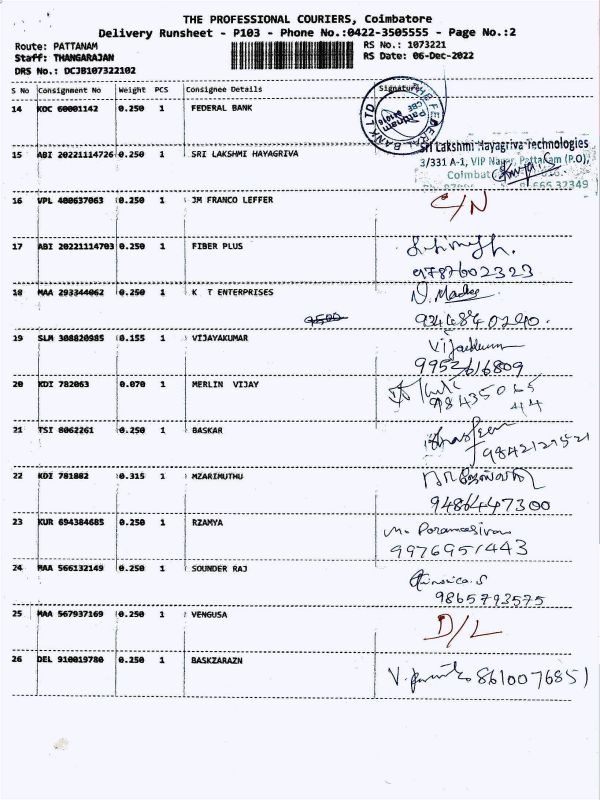 THE PROFESSIONAL COURIERS, Coimbatore
Delivery Runsheet - P103 - Phone No.:0422-3505555 - Page No.:2
Route: PATTANAM
RS No.: 1073221
Staff: THANGARAJAN
RS Date: 06-Dec-2022
DRS No.: DCJB107322102
S No Consignment No Weight PCS Consignee Details Signature
14 KDC 60001142 0.250 1 FEDERAL BANK
THE FEDERAL BANK LTD
Pattanam
641016
15 ABI 20221114726 0.250 1 SRI LAKSHMI HAYAGRIVA
Sri Lakshmi Hayagriva Technologies
3/331 A-1, VIP Nagar, Pattanam (P.O),
16 VPL 400637063 0.250 1 JM FRANCO LEFFER C/N
17 ABI 20221114703 0.250 1 FIBER PLUS
9787602323
18 MAA 293344062 0.250 1 K T ENTERPRISES
9344840240.
19 SLM 308820985 0.155 1 VIJAYAKUMAR
9952616809
20 KDI 782063 0.070 1 MERLIN VIJAY
98435065
44
21 TSI 8062261 0.250 1 BASKAR
9842129521
22 KDI 781882 0.315 1 MZARIMUTHU
9486447300
23 KUR 694384685 0.250 1 RZAMYA
9976951443
24 MAA 566132149 0.250 1 SOUNDER RAJ
9865793575
25 MAA 567937169 0.250 1 VENGUSA D/L
26 DEL 910019780 0.250 1 BASKZARAZN
8610076851